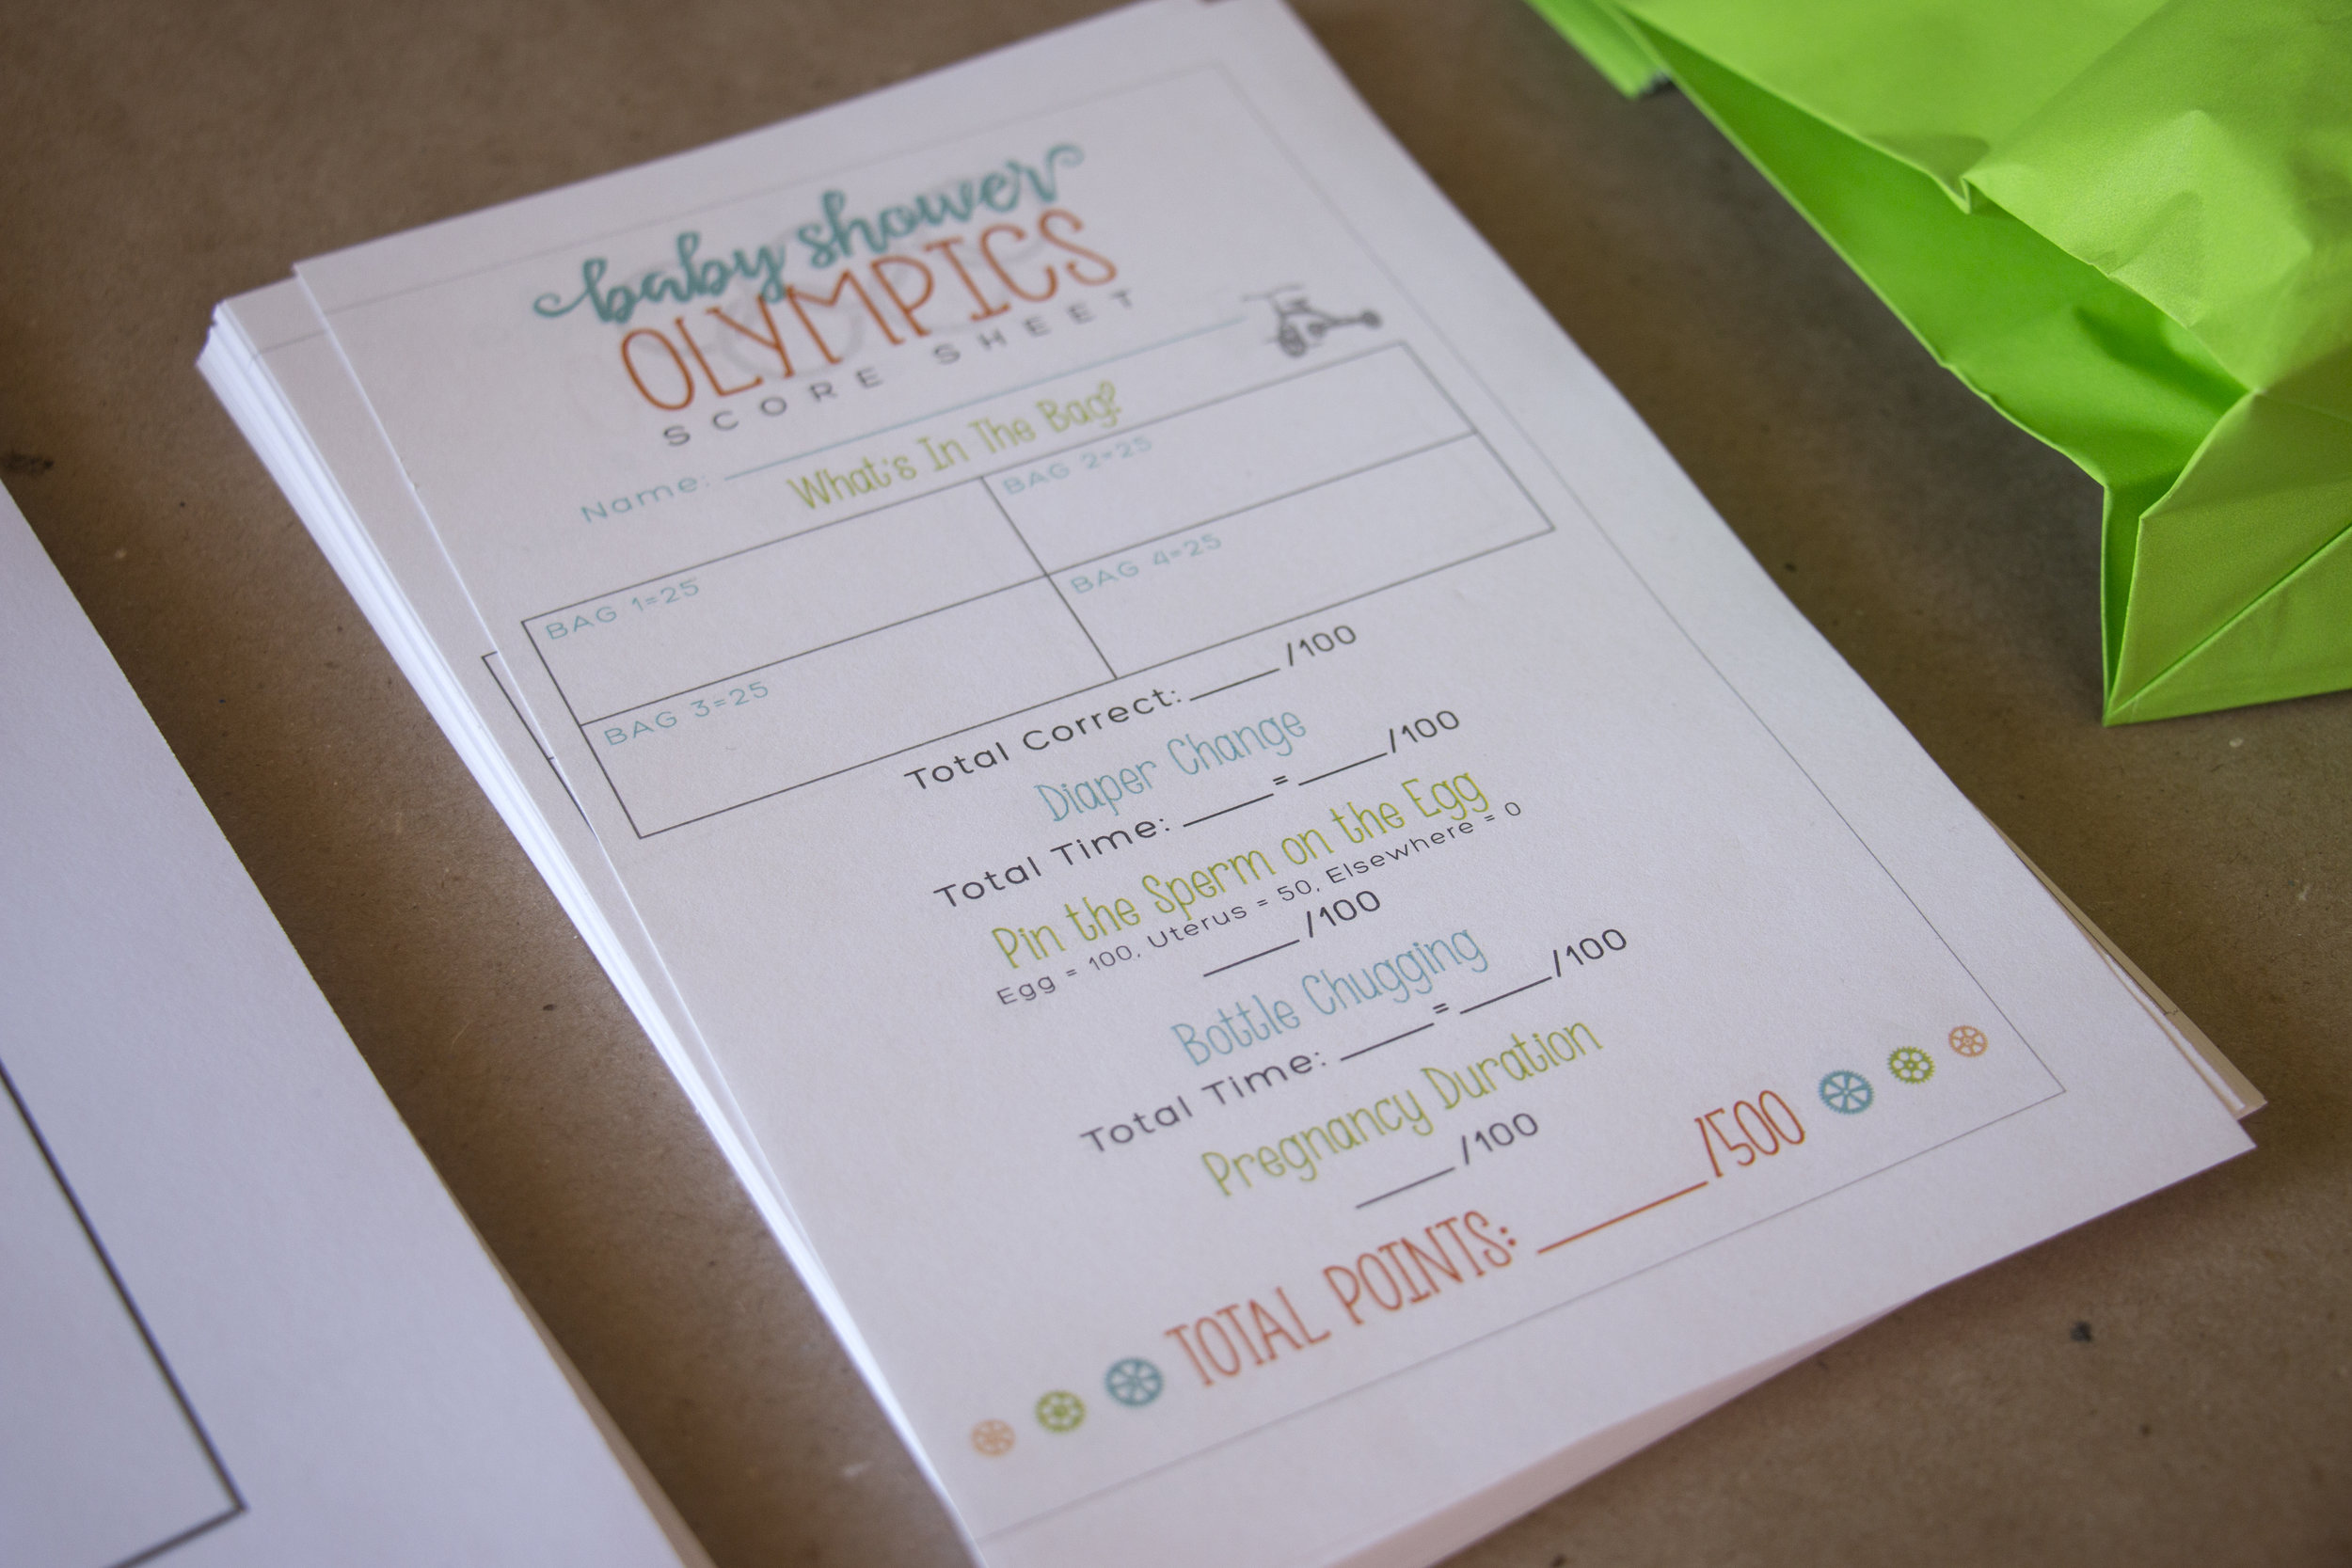 baby shower
OLYMPICS
SCORE SHEET
Name:
What's In The Bag?
BAG 1=25
BAG 2=25
BAG 3=25
BAG 4=25
Total Correct: ____ /100
Diaper Change
Total Time: ____ = ____ /100
Pin the Sperm on the Egg
Egg = 100, Uterus = 50, Elsewhere = 0
____ /100
Bottle Chugging
Total Time: ____ = ____ /100
Pregnancy Duration
____ /100
TOTAL POINTS: ____ /500